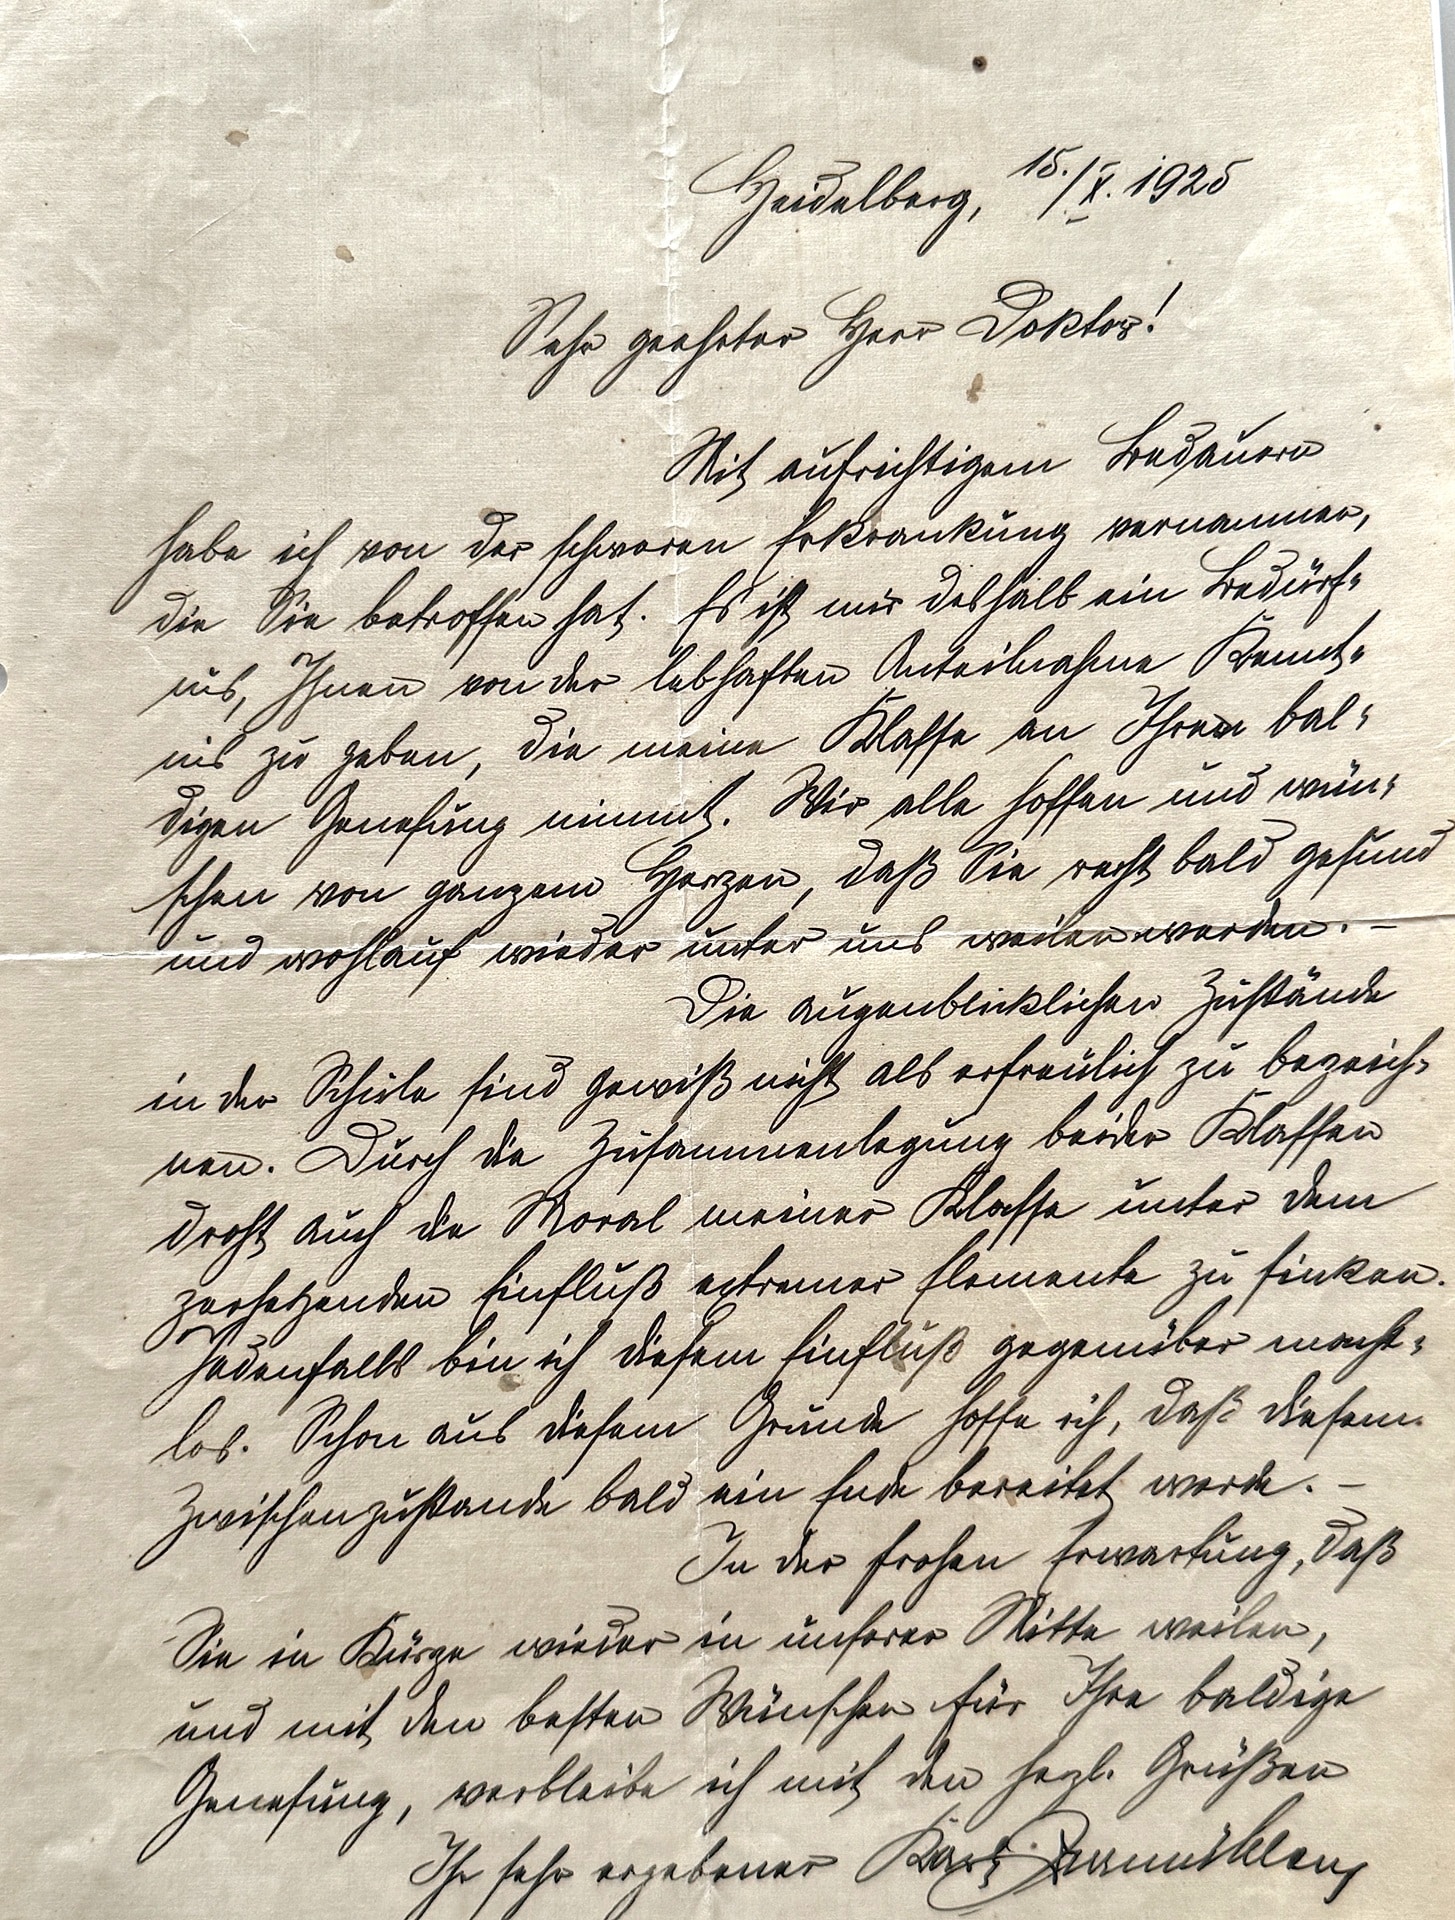 Heidelberg, 15./X. 1925
Sehr geehrter Herr Doktor!
Mit aufrichtigem Bedauern
habe ich von der schweren Erkrankung vernommen,
die Sie betroffen hat. Es ist mir deshalb ein Bedürf-
nis, Ihnen von der lebhaften Anteilnahme Kennt-
nis zu geben, die meine Klasse an Ihrer bal-
digen Genesung nimmt. Wir alle hoffen und wün-
schen von ganzem Herzen, daß Sie recht bald gesund
und wohlauf wieder unter uns weilen werden. –
Die augenblicklichen Zustände
in der Schule sind gewiß nicht als erfreulich zu bezeich-
nen. Durch die Zusammenlegung beider Klassen
droht auch die Moral meiner Klasse unter dem
zersetzenden Einfluß extremer Elemente zu sinken.
Jedenfalls bin ich diesem Einfluß gegenüber macht-
los. Schon aus diesem Grunde hoffe ich, daß diesem
Zwischenzustande bald ein Ende bereitet werde. –
In der frohen Erwartung, daß
Sie in Kürze wieder in unserer Mitte weilen,
und mit den besten Wünschen für Ihre baldige
Genesung, verbleibe ich mit den herzl. Grüßen
Ihr sehr ergebener Karl